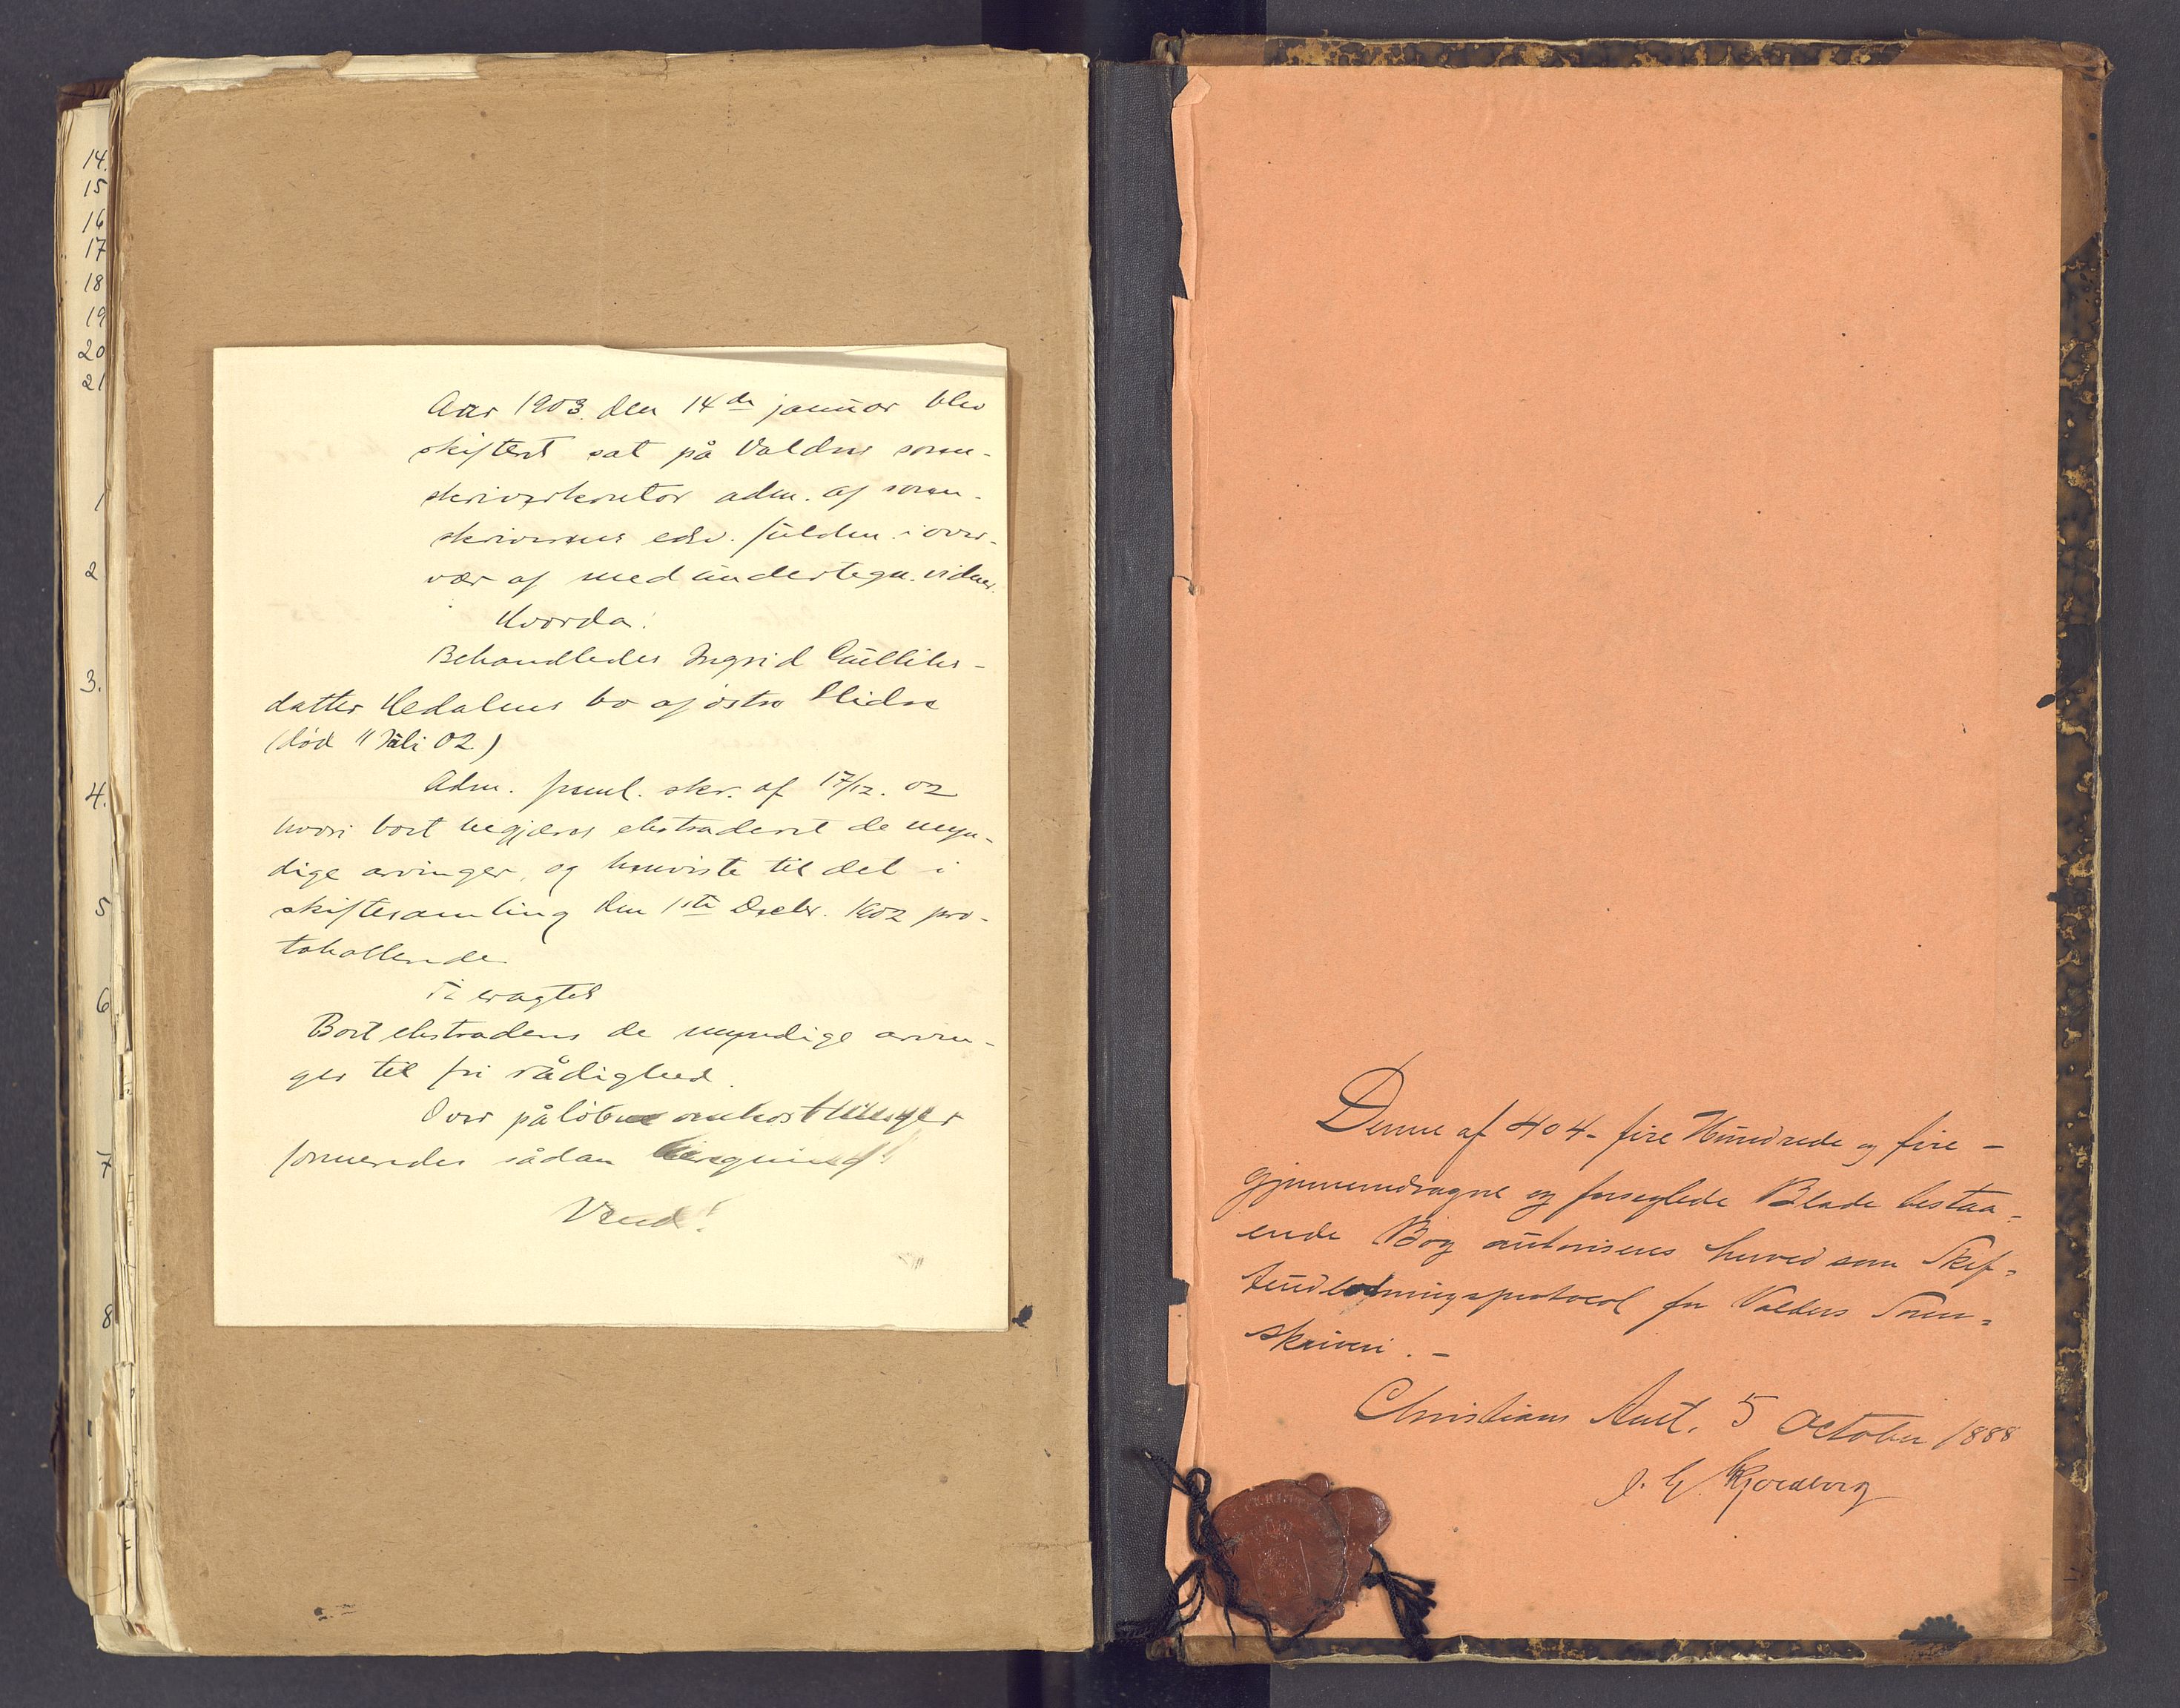 14.
15
16
17
18
19
20
21
1
2
3.
4.
5
6
7
8
Aar 1903. den 14de januar blev
skifteret sat på Valdres soren-
skriverkontor adm. af soren-
skriverens edsv. fuldm. i over-
vær af medundertegn. vidner.
Hvorda:
Behandledes Ingrid Gulliks-
datter Hedalens bo af østre Slidre
(død 11 Juli 02)
Adm. freml. skr. af 17/12. 02
hvori boet begjæres ekstraderet de myn-
dige arvinger, og henviste til det i
skiftesamling den 1ste Decbr. 1902 pro-
tokollerede
Ti eragtes
Boet ekstraderes de myndige arvin-
ger til fri rådighed.
Over påløbne omkostninger
formeredes sådan
Vend!
Denne af 404- fire Hundrede og fire -
gjennemdragne og forseglede Blade bestaa-
ende Bog autoriseres herved som Skif-
teudlodningsprotocol for Valders Soren-
skriveri. -
Christians Amt, 5 October 1888